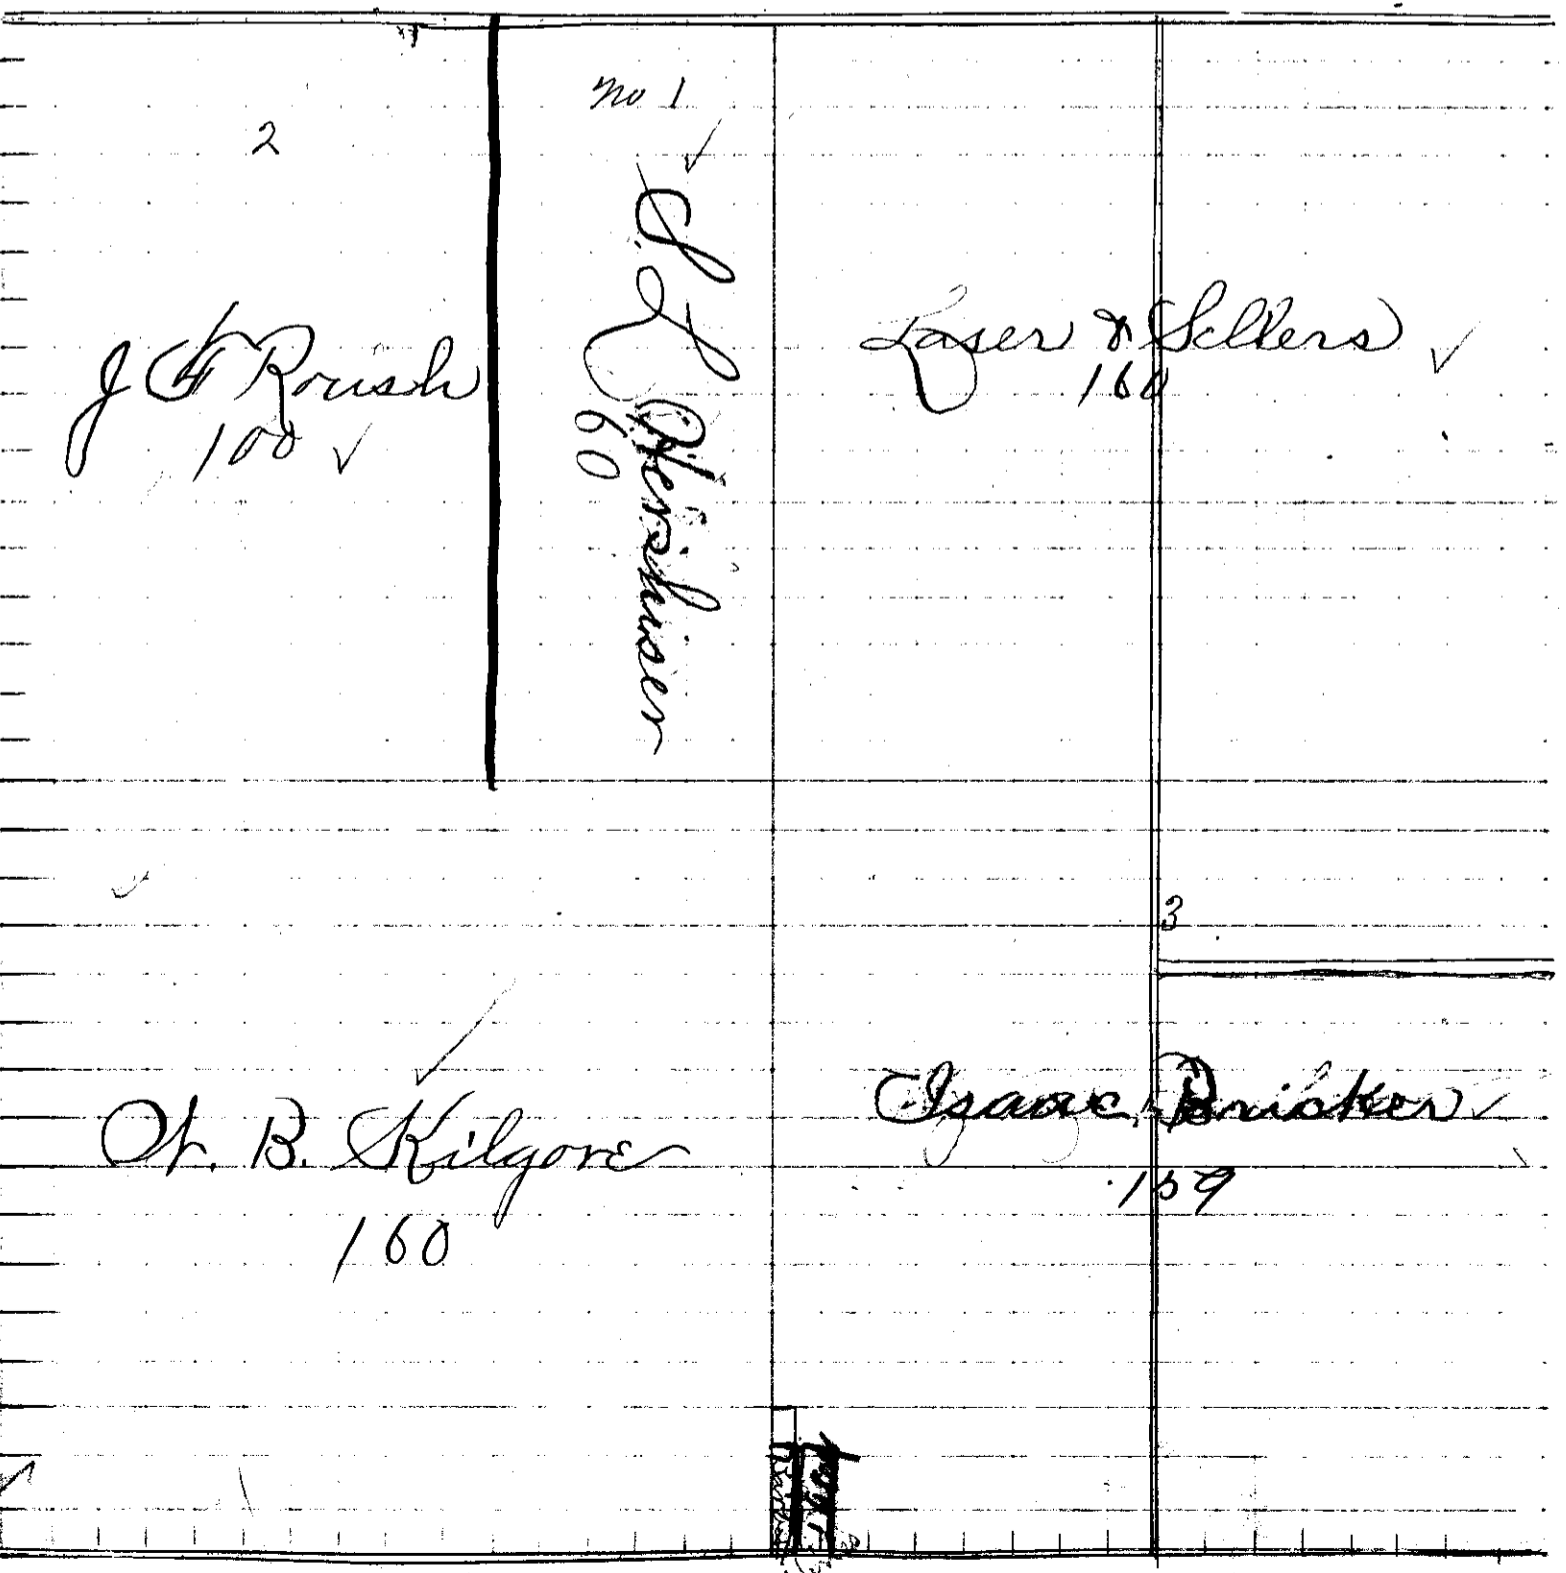 2
J F Roush
100 ✓
No 1
✓
S. L. Hershiser
60
Laser & Sellers ✓
160
3
✓
W. B. Kilgore
160
Isaac Bricker ✓
159